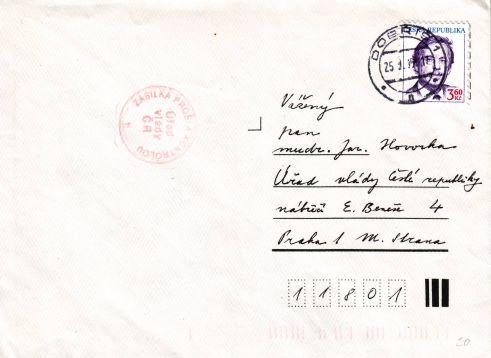 ČESKÁ REPUBLIKA
3,60
Kč
ZÁSILKA PROŠLA KONTROLOU
Úřad
vlády
ČR
Vážený
pan
mudr. Jar. Hovorka
Úřad vlády České republiky
nábřeží E. Beneše 4
Praha 1 M. Strana
11801
20